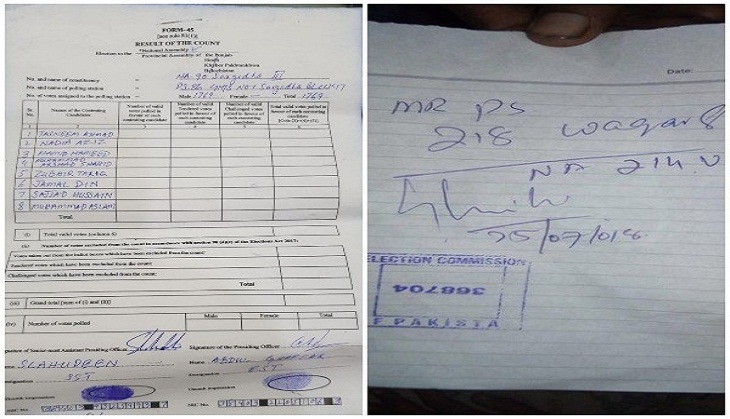 FORM-45
[see rule 81(1)]
RESULT OF THE COUNT
Election to the
*National Assembly
Provincial Assembly of the Punjab
Sindh
Khyber Pakhtunkhwa
Balochistan
No. and name of constituency = NA-90 Sargodha III
No. and name of polling station = PS.86 GMPS No 1 Sargodha
No. of votes assigned to the polling station = Male 1769 Female — Total 1769
Sr. No. Names of the Contesting Candidates Number of valid votes polled in favour of each contesting candidate Number of valid Tendered votes polled in favour of each contesting candidate Number of valid Challenged votes polled in favour of each contesting candidate Total valid votes polled in favour of each contesting candidate
1 TASNEEM AHMAD
2 NADIA AZIZ
3 HAMID HAMEED
4 MUHAMMAD ARSHAD SHAHID
5 ZUBAIR TARIQ
6 JAMAL DIN
7 SAJJAD HUSSAIN
8 MUHAMMAD ASLAM
Total
(i) Total valid votes (column 6)
(ii) Number of votes excluded from the count in accordance with section 90 of the Elections Act 2017:
Votes taken out from the ballot boxes which have been excluded from the count:
Tendered votes which have been excluded from the count:
Challenged votes which have been excluded from the count:
Total
(iii) Grand total [sum of (i) and (ii)]
(iv) Number of votes polled Male Female Total
Signature of Senior-most Assistant Presiding Officer
Signature of the Presiding Officer
SLAHUDEEN
Name ABDUL
SST
EST
Thumb impression
NIC No.
Date:
MR PS
218 waqar
NA 214
25/07/018
ELECTION COMMISSION
368704
F PAKISTA